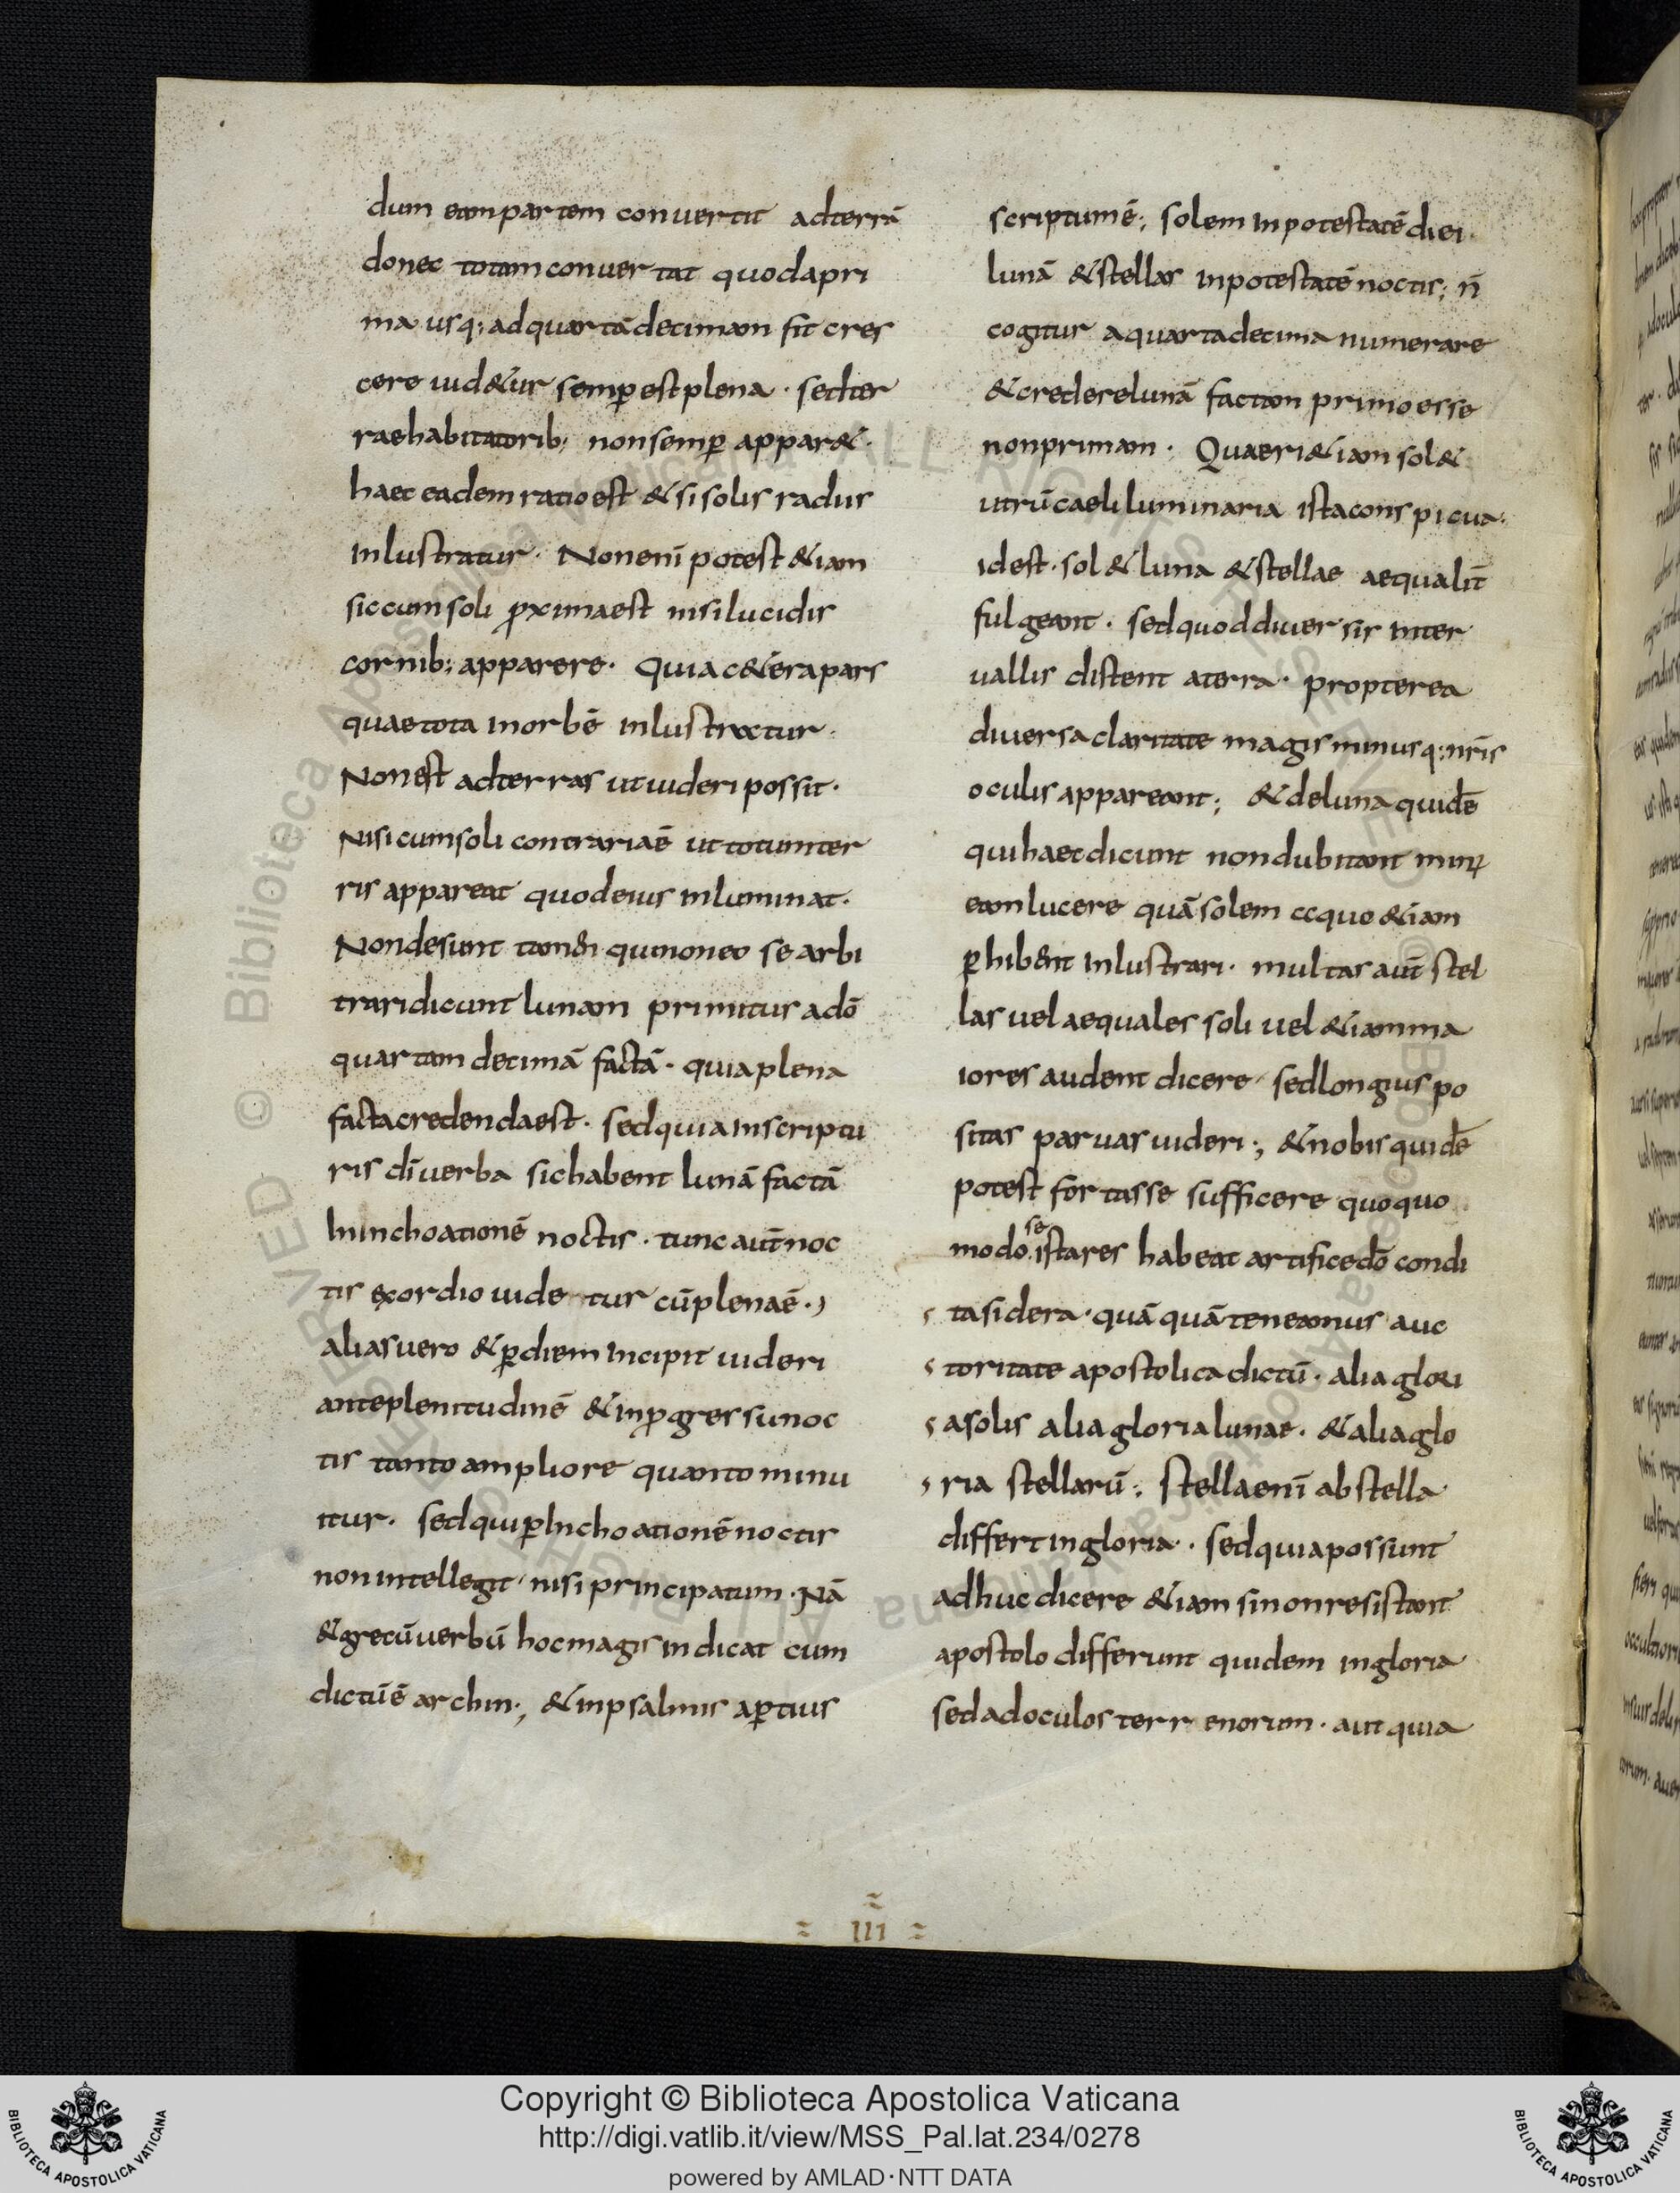 dum eam partem convertit ad terrā
donec totam convertat quod a pri
ma usq; ad quartā decimam fit cres
cere vid&ur semp̱ est plena · sed ter
rae habitatorib; non semp̱ appar& ·
haec eadem ratio est & si solis radiis
inlustratur · Non enī potest &iam
sic cum soli ꝓxima est nisi lucidis
cornib; apparere · Quia c&era pars
quae tota in orbē inlustratur ·
Non est ad terras ut videri possit ·
Nisi cum soli contraria ē ut totum ter
ris appareat quod eius inluminat ·
Non desunt tam̄ qui non eo se arbi
trari dicunt lunam primitus a dō
quartam decimā factā · quia plena
facta credenda est · sed quia in scriptu
ris dī verba sic habent lunā factā
In inchoationē noctis · tunc aut̄ noc
tis exordio videtur cū plena ē ·
alias vero & p̱ diem incipit videri
ante plenitudinē & in ꝓgressu noc
tis tanto ampliore quanto minu
itur · sed qui p̱ Inchoationē noctis
non intellegit nisi principatum · Nā
& grecū verbū hoc magis indicat cum
dictū ē archin ·, & in psalmis ap̱tius
scriptum ē ; solem in potestatē diei ·
lunā & stellas in potestatē noctis ; n̄
cogitur a quarta decima numerare
& credere lunā factam primo esse
non primam · Quaeri &iam sol&
utrū caeli luminaria ista conspicua ·
id est · sol & luna & stellae aequalit̄
fulgeant · sed quod diversis inter
vallis distent a terra · propterea
diversa claritate magis minusq; nr̄is
oculis appareant ; & de luna quidē
qui haec dicunt non dubitant min⁊
eam lucere quā solem a quo &iam
p̱hibent inlustrari · multas aut̄ stel
las vel aequales soli vel &iam ma
iores audent dicere sed longius po
sitas parvas videri ·, & nobis quidē
potest fortasse sufficere quoquo
se
modo · ista res habeat artifice dō condi
ta sidera · quā quā teneamus auc
toritate apostolica dictū · alia glori
a solis alia gloria lunae · & alia glo
ria stellarū ; stella enī ab stella
differt in gloria · sed quia possunt
adhuc dicere &iam si non resistant
apostolo differunt quidem in gloria
sed ad oculos terrenorum · aut quia
III
© Biblioteca Apostolica Vaticana ALL RIGHTS RESERVED
Copyright © Biblioteca Apostolica Vaticana
http://digi.vatlib.it/view/MSS_Pal.lat.234/0278
powered by AMLAD·NTT DATA
BIBLIOTECA APOSTOLICA VATICANA
BIBLIOTECA APOSTOLICA VATICANA